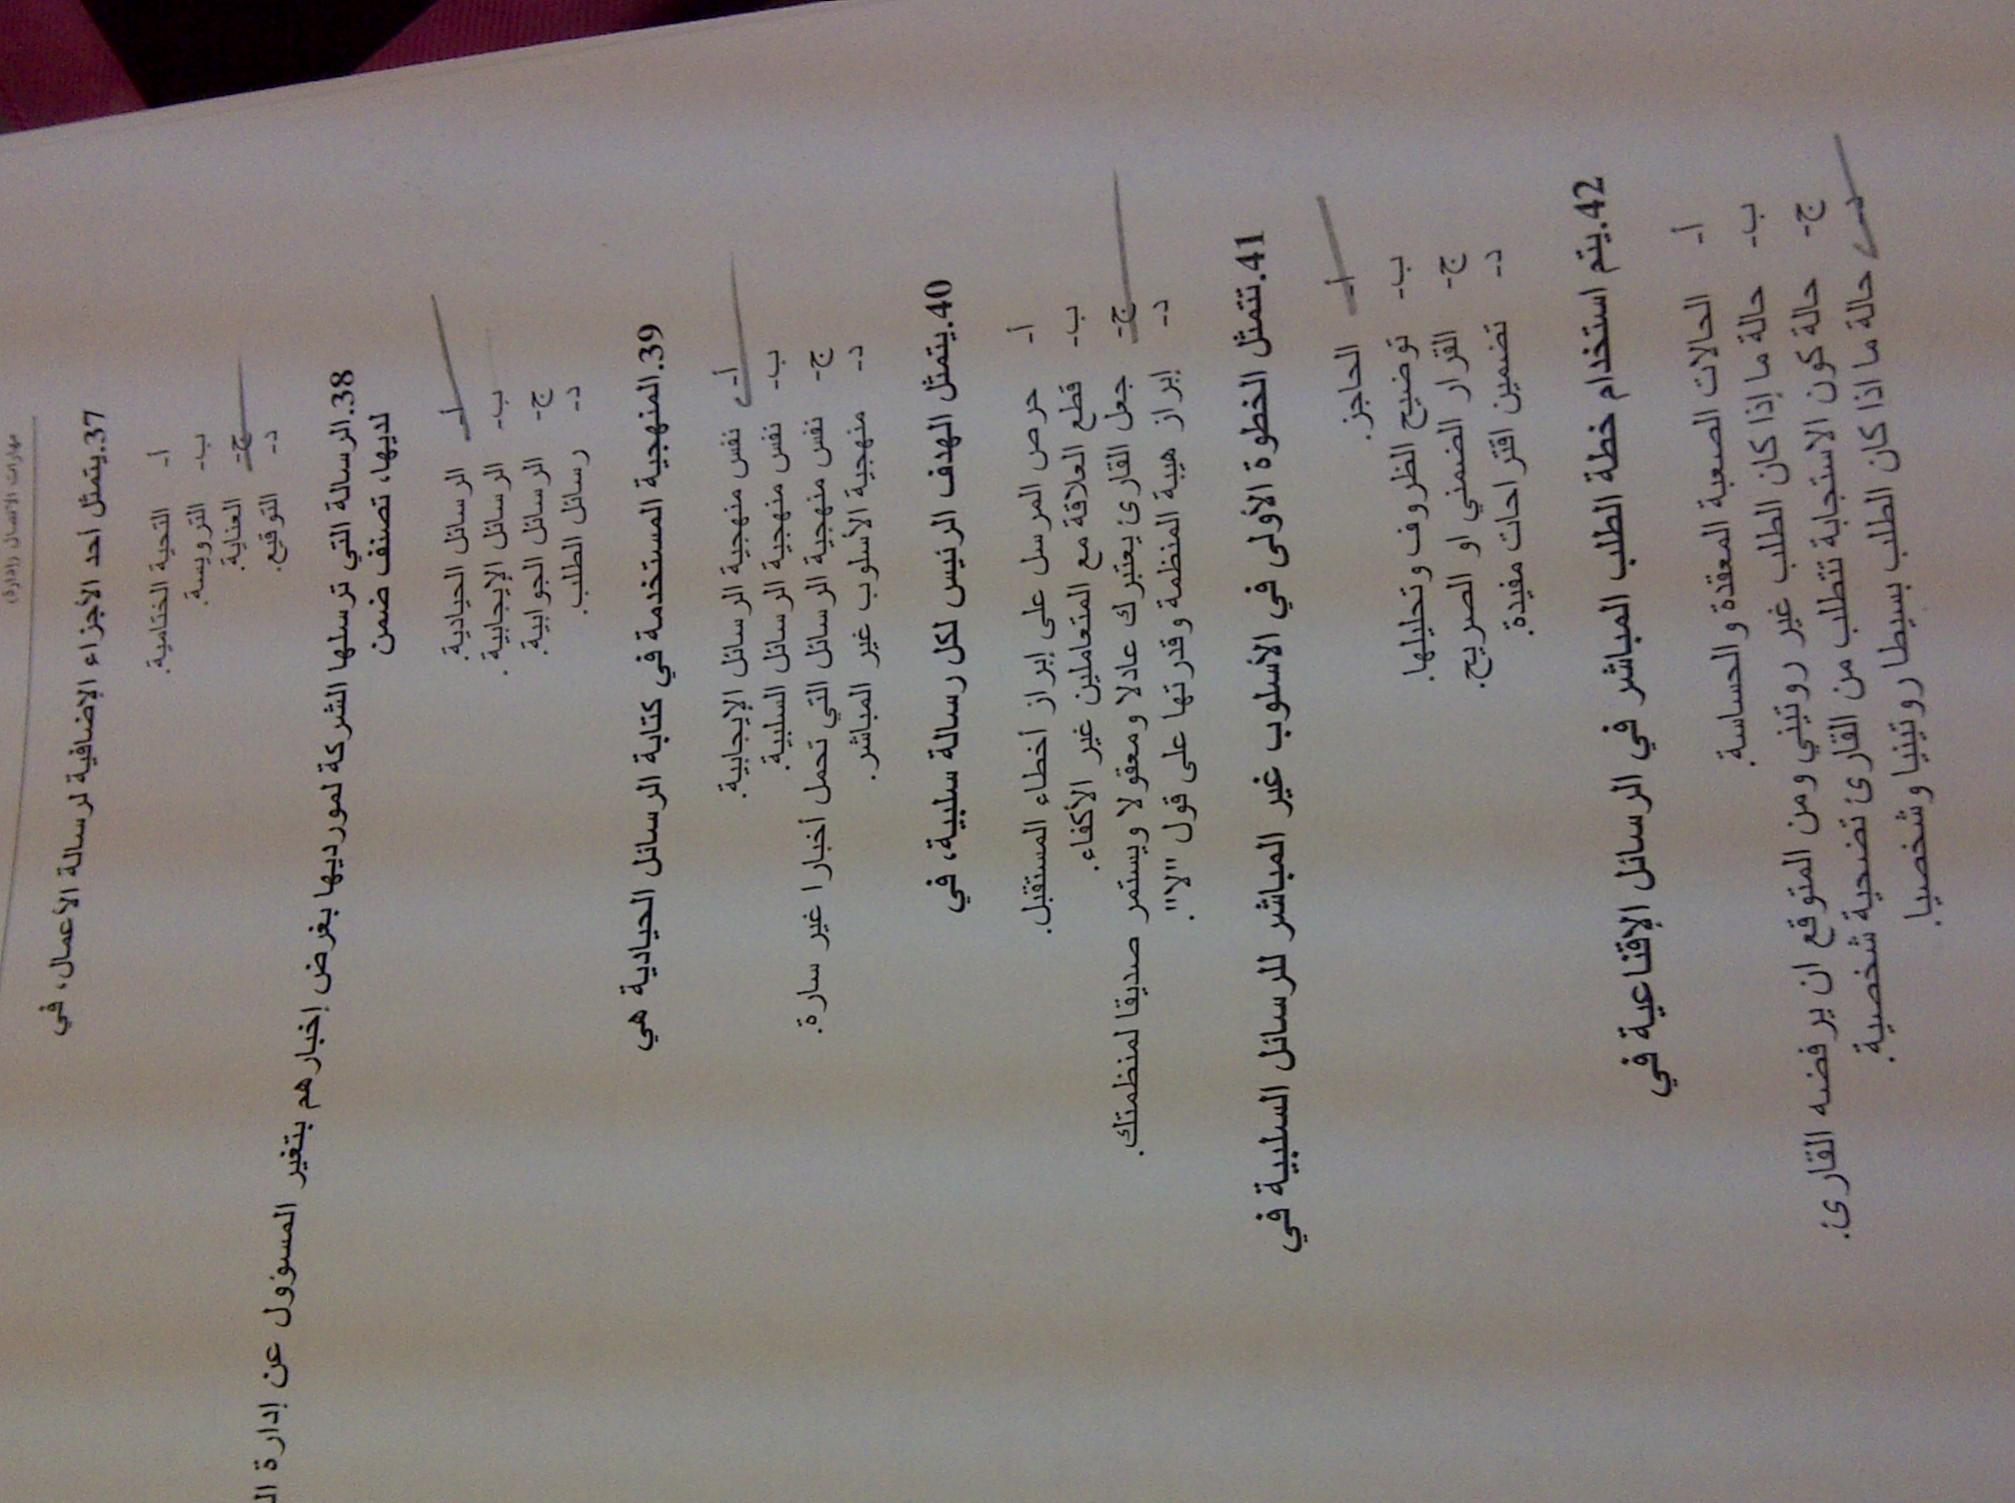 مهارات الاتصال (إدارة)
37.يتمثل احد الأجزاء الإضافية لرسالة الأعمال، في
أ- التحية الختامية.
ب- الترويسة.
ج- العناية.
د- التوقيع.
38.الرسالة التي ترسلها الشركة لمورديها بغرض إخبارهم بتغير المسؤول عن إدارة
لديها، تصنف ضمن
أ- الرسائل الحيادية.
ب- الرسائل الإيجابية.
ج- الرسائل الجوابية.
د- رسائل الطلب.
39.المنهجية المستخدمة في كتابة الرسائل الحيادية هي
أ- نفس منهجية الرسائل الإيجابية.
ب- نفس منهجية الرسائل السلبية.
ج- نفس منهجية الرسائل التي تحمل أخبارا غير سارة.
د- منهجية الأسلوب غير المباشر.
40.يتمثل الهدف الرئيس لكل رسالة سلبية، في
أ- حرص المرسل على إبراز أخطاء المستقبل.
ب- قطع العلاقة مع المتعاملين غير الأكفاء.
ج- جعل القارئ يعتبرك عادلا ومعقولا ويستمر صديقا لمنظمتك.
د- إبراز هيبة المنظمة وقدرتها على قول "لا".
41.تتمثل الخطوة الأولى في الأسلوب غير المباشر للرسائل السلبية في
أ- الحاجز.
ب- توضيح الظروف وتحليلها.
ج- القرار الضمني او الصريح.
د- تضمين اقتراحات مفيدة.
42.يتم استخدام خطة الطلب المباشر في الرسائل الإقناعية في
أ- الحالات الصعبة المعقدة والحساسة.
ب- حالة ما إذا كان الطلب غير روتيني ومن المتوقع ان يرفضه القارئ.
ج- حالة كون الاستجابة تتطلب من القارئ تضحية شخصية.
د- حالة ما اذا كان الطلب بسيطا روتينيا وشخصيا.